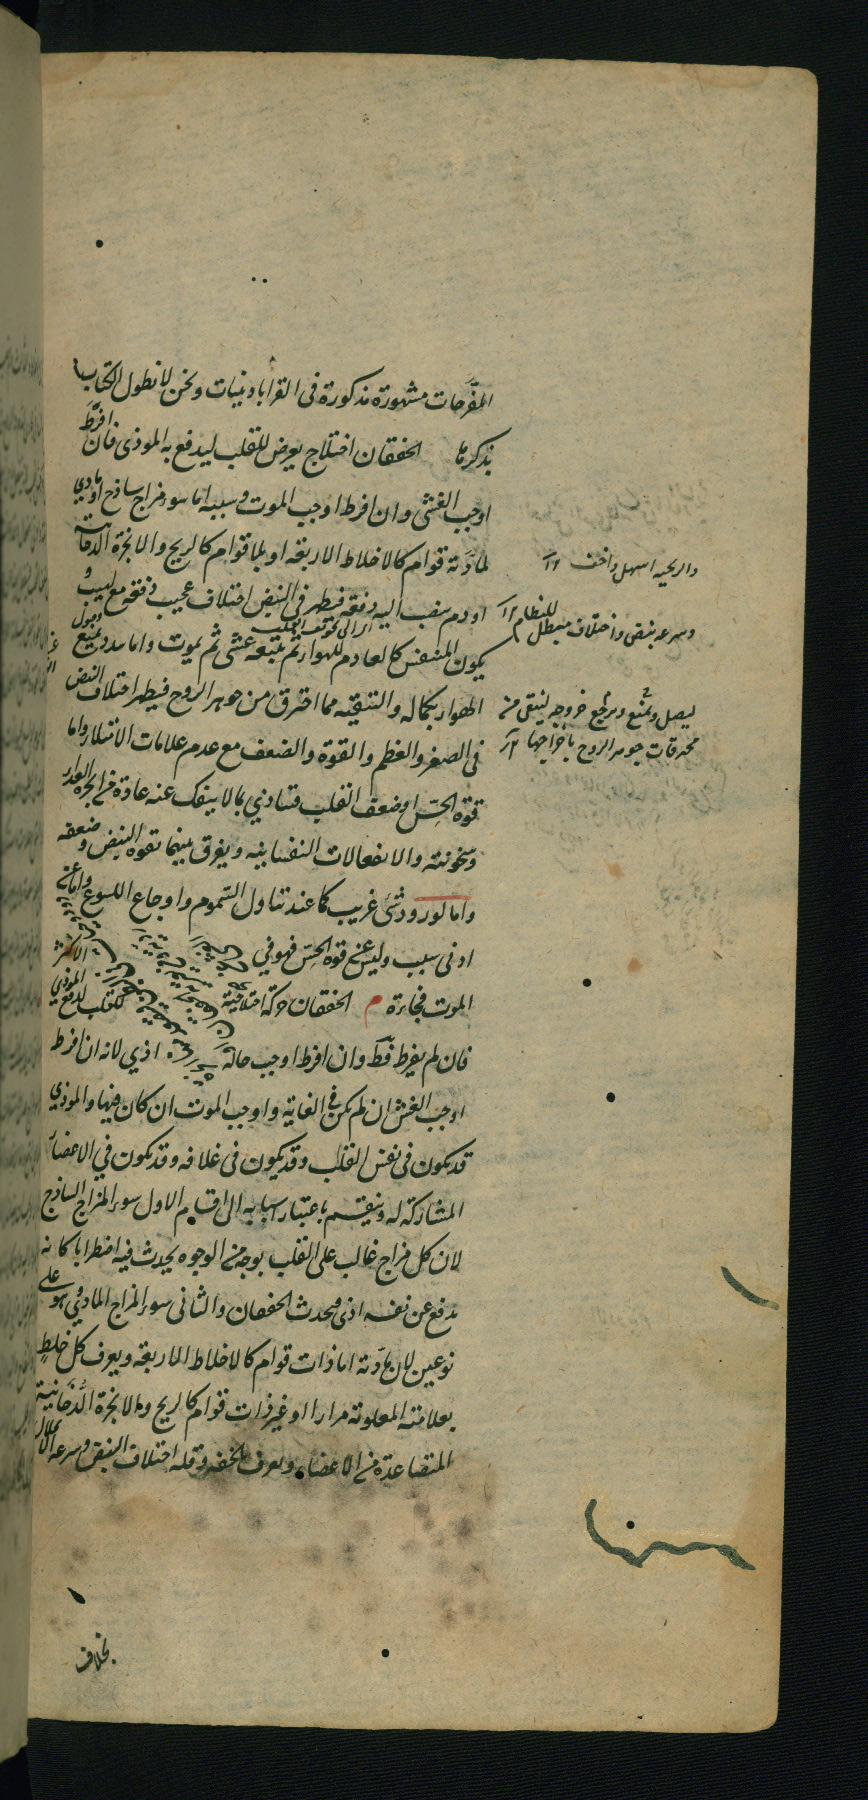 المفرحات مشهورة مذكورة فى القراباذينيات ونحن لا نطول الكتاب
بذكرها الخفقان اختلاج يعرض للقلب ليدفع به الموذى فان افرط
اوجب الغشى وان افرط اوجب الموت وسببه اما سوء مزاج ساذج او مادي
لمادة قوام كالاخلاط الاربعة او بلا قوام كالريح والابخرة الدخانية
او دم ينصب اليه دفعة فيظهر فى النبض اختلاف عجيب دفعة مع لهيب و
يكون المتنفس كالعادم للهواء ثم يتبعه غشى ثم يموت واما سدد يمنع وصول
الهواء بكماله والتنقية مما احترق من جوهر الروح فيظهر اختلاف النبض
فى الصغر والعظم والقوة والضعف مع عدم علامات الامتلاء واما
قوة الحس او ضعف القلب فتاذي بما لا ينفك عنه عادة من ابخرة الغذاء
وسخونته والانفعالات النفسانية ويفرق بينهما بقوة النبض وضعفه
واما لورود شئ غريب كما عند تناول السموم واوجاع اللسوع واما عن
ادنى سبب وليس عن قوة الحس فهو فى الاكثر
الموت فجاءة م الخفقان حركة اختلاجية للقلب لدفع الموذي
فان لم يفرط فقط وان افرط اوجب حالة اذي لانه ان افرط
اوجب الغشى ان لم يكن فى الغاية واوجب الموت ان كان فيها والموذي
قد يكون فى نفس القلب وقد يكون فى غلافه وقد يكون فى الاعضاء
المشاركة له وينقسم باعتبار اسبابه الى اقسام الاول سوء المزاج الساذج
لان كل مزاج غالب على القلب بوجه من الوجوه يحدث فيه اضطرابا كانه
يدفع عن نفسه اذى فيحدث الخفقان والثانى سوء المزاج المادي وهو على
نوعين لان مادته اما ذات قوام كالاخلاط الاربعة ويعرف كل خلط
بعلامته المعلومة مرارا او غير ذات قوام كالريح والابخرة الدخانية
المتصاعدة من الاعضاء ويعرف بالخفة وقلة اختلاف النبض وسرعة الانحلال
والريحية اسهل واخف ١٢
وسرعة نبض واختلاف مبطل للنظام ١٢
ليصل ويمنع ويرجع خروجه لينقى من
محترقات جوهر الروح باخراجها ١٢
بخلاف